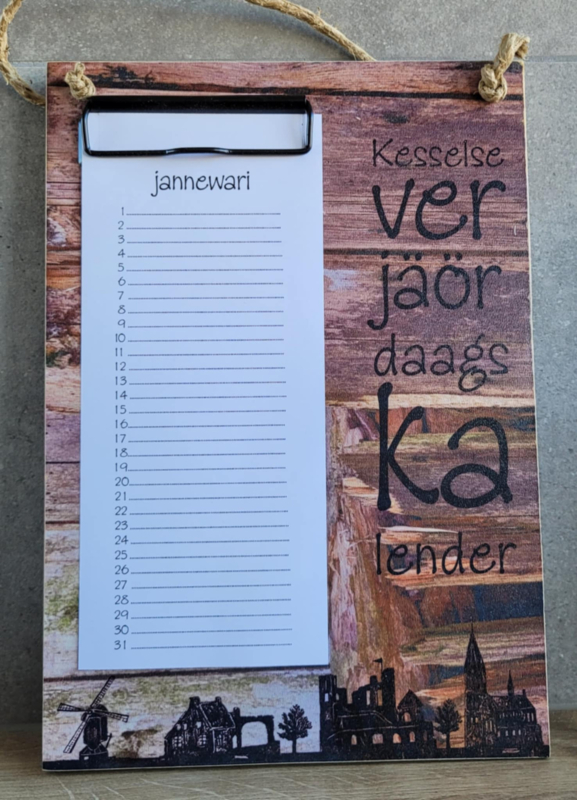 jannewari
1
2
3
4
5
6
7
8
9
10
11
12
13
14
15
16
17
18
19
20
21
22
23
24
25
26
27
28
29
30
31
Kesselse
ver
jäör
daags
ka
lender